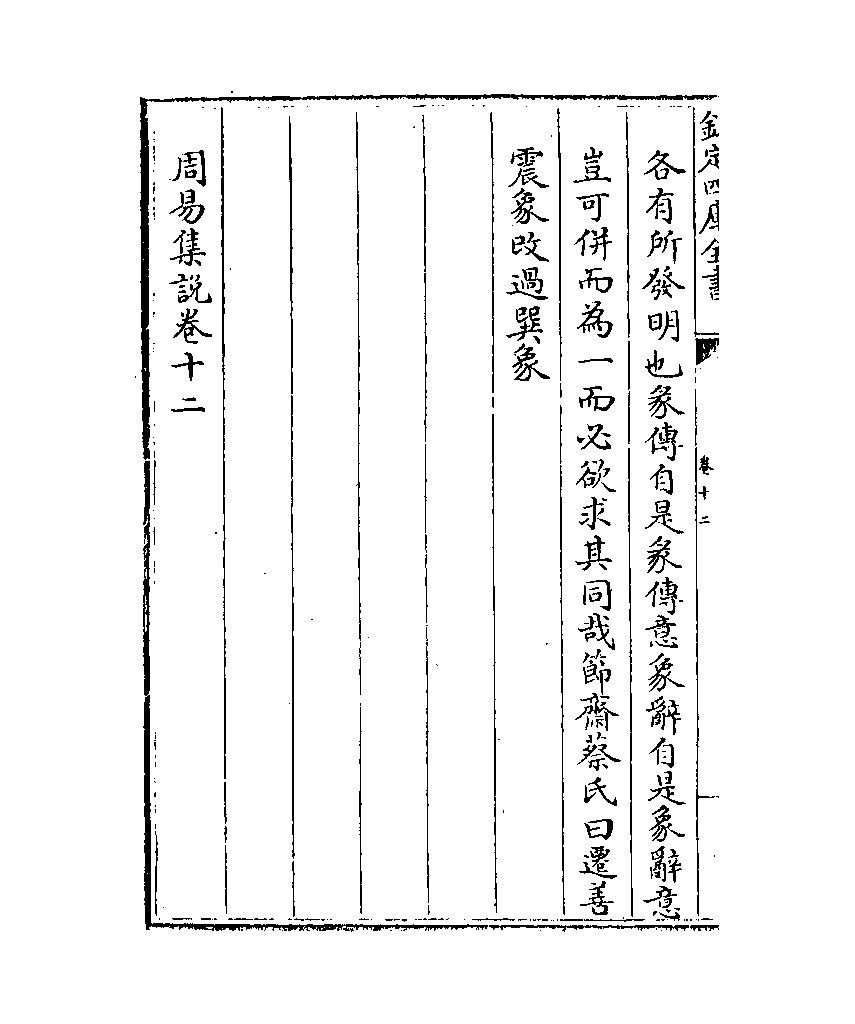 欽定四庫全書
卷十二
各有所發明也彖傳自是彖傳意象辭自是象辭意
豈可併而為一而必欲求其同哉節齋蔡氏曰遷善
震象改過巽象
周易集説卷十二